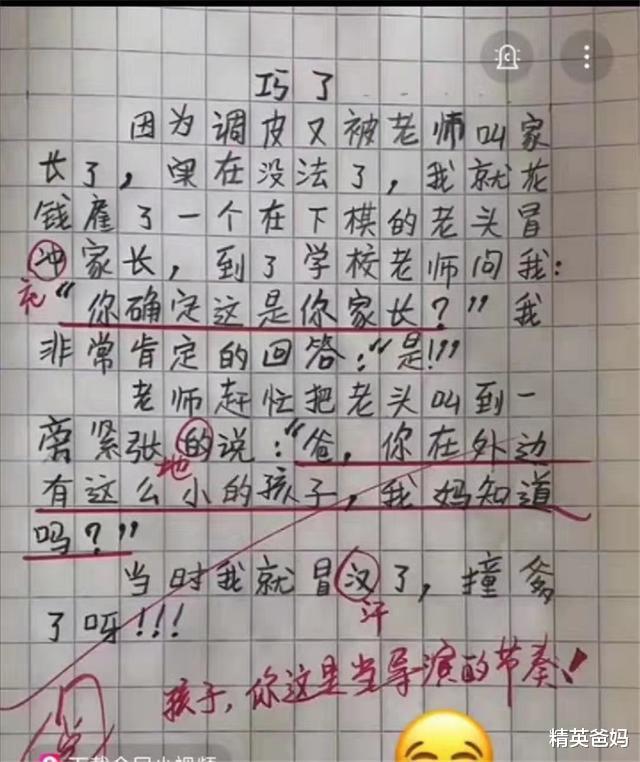 巧了
因为调皮又被老师叫家
长了，实在没法了，我就花
钱雇了一个在下棋的老头冒
冲家长，到了学校老师问我：
充
“你确定这是你家长？”我
非常肯定的回答：“是!!!”
老师赶忙把老头叫到一
旁紧张的说：“爸，你在外边
地
有这么小的孩子，我妈知道
吗？”
当时我就冒汉了，撞爹
汗
了呀!!!
孩子，你这是当导演的节奏！
精英爸妈